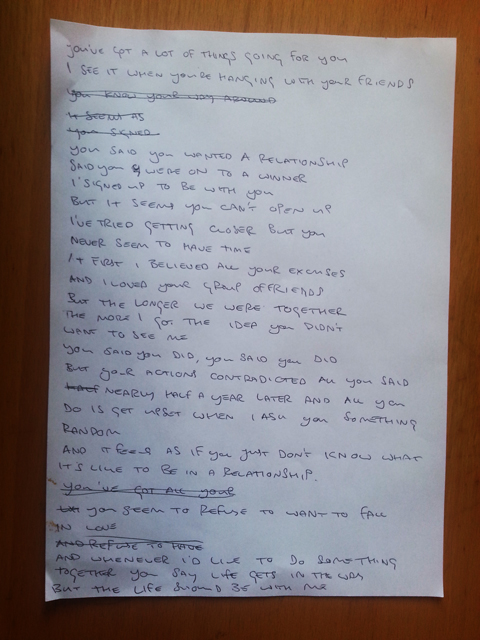 you've got a lot of things going for you
I see it when you're hanging with your friends
you know your way around
it seems as
you signed
you said you wanted a relationship
said you were on to a winner
I signed up to be with you
but it seems you can't open up
I've tried getting closer but you
never seem to have time
At first I believed all your excuses
and I loved your group of friends
but the longer we were together
the more I got the idea you didn't
want to see me
you said you did, you said you did
but your actions contradicted all you said
half nearly half a year later and all you
do is get upset when I ask you something
random
and it feels as if you just don't know what
it's like to be in a relationship.
you've got all your
you seem to refuse to want to fall
in love
and refuse to have
and whenever I'd like to do something
together you say life gets in the way
but the life should be with me